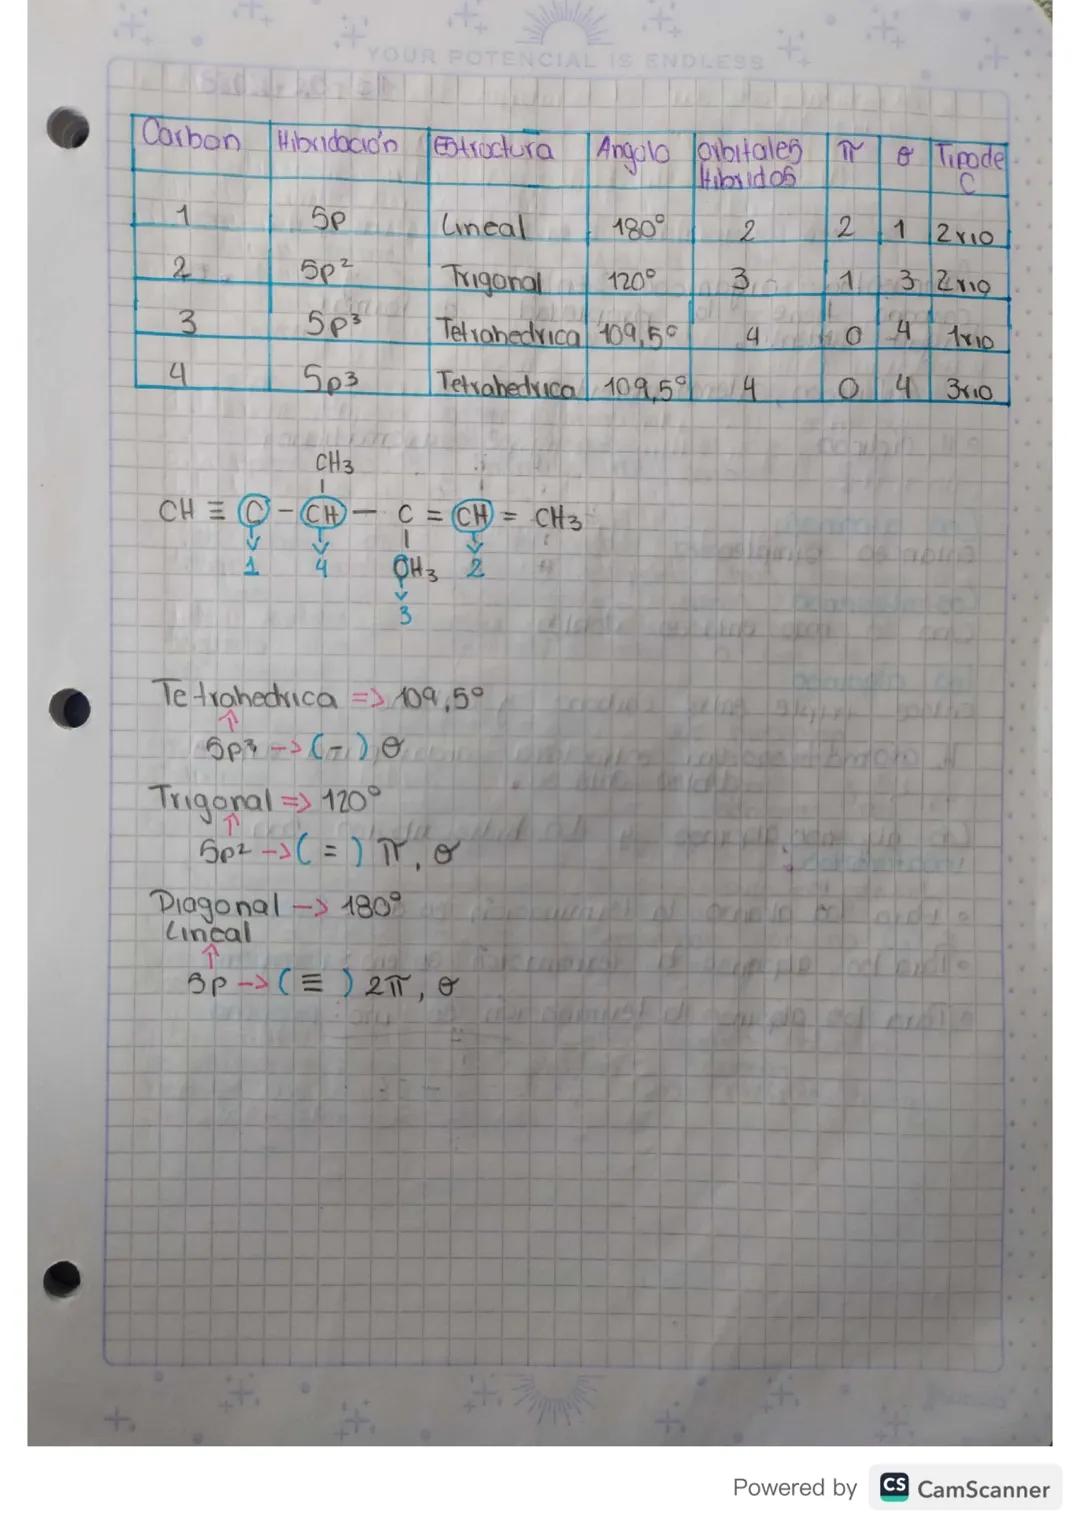 YOUR POTENCIAL IS ENDLESS
Carbon Hibridación Estructura Angulo Orbitales Hibridos π σ Tipo de C
1 Sp Lineal 180° 2 2 1 2rio
2 Sp² Trigonal 120° 3 1 3 2rio
3 Sp³ Tetrahedrica 109,5° 4 0 4 1rio
4 Sp3 Tetrahedrica 109,5° 4 0 4 3rio
CH3
CH ≡ C - CH - C = CH = CH3
1 4 CH3 2
3
Tetrahedrica => 109,5°
Sp3 -> (-) σ
Trigonal => 120°
Sp2 -> ( = ) π, σ
Diagonal -> 180°
Lineal
Sp -> ( ≡ ) 2π, σ
Powered by CS CamScanner